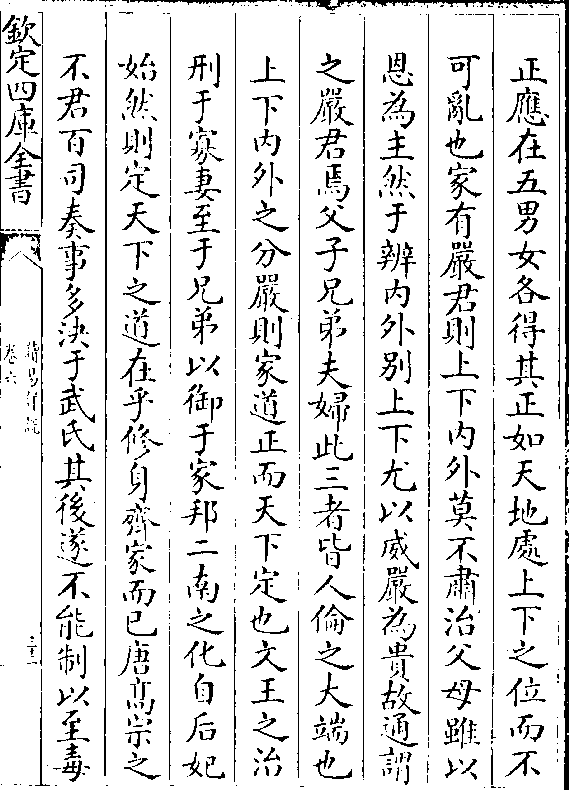 正應在五男女各得其正如天地處上下之位而不
可亂也家有嚴君則上下内外莫不肅治父母雖以
恩為主然于辨内外别上下尤以威嚴為貴故通謂
之嚴君焉父子兄弟夫婦此三者皆人倫之大端也
上下内外之分嚴則家道正而天下定也文王之治
刑于寡妻至于兄弟以御于家邦二南之化自后妃
始然則定天下之道在乎修身齊家而已唐髙宗之
不君百司奏事多決于武氏其後遂不能制以至毒
欽定四庫全書
卷六